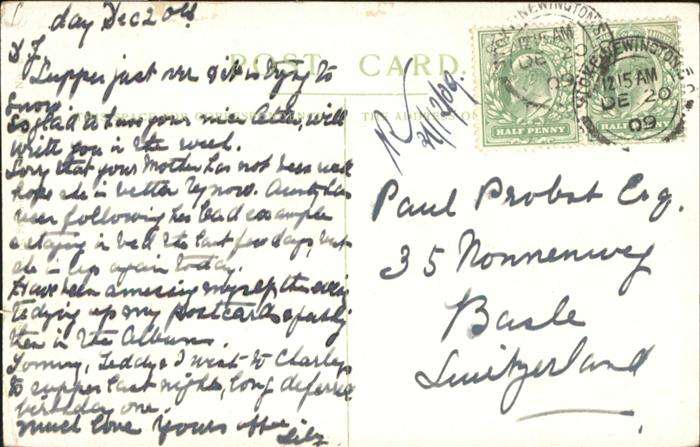 day Dec 20th
D F.
Supper just over & it is trying to
snow.
So glad to have your nice letter, will
write you in the week.
Sorry that your Mother has not been well
hope she is better by now. Aunt has
been following her bad example
& staying in bed the last few days, but
she is up again today.
Have been amusing myself this evening
tidying up my postcards & putting
them in the Albums.
Tommy, Teddy & I went to Charleys
to supper last night, long deferred
birthday one.
Much love Yours affec
POST CARD
THE ADDRESS ON
21/12/09
STOKE NEWINGTON S.O.
12.15 AM
DE 20
09
HALF PENNY
STOKE NEWINGTON S.O.
12.15 AM
DE 20
09
HALF PENNY
Paul Probst Esq.
35 Nonnenweg
Basle
Switzerland